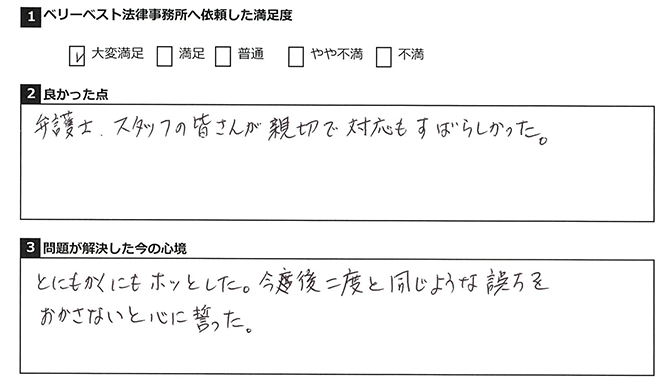 1 ベリーベスト法律事務所へ依頼した満足度
☑ 大変満足 □ 満足 □ 普通 □ やや不満 □ 不満
2 良かった点
弁護士、スタッフの皆さんが親切で対応もすばらしかった。
3 問題が解決した今の心境
とにもかくにもホッとした。今後二度と同じような誤ちを
おかさないと心に誓った。